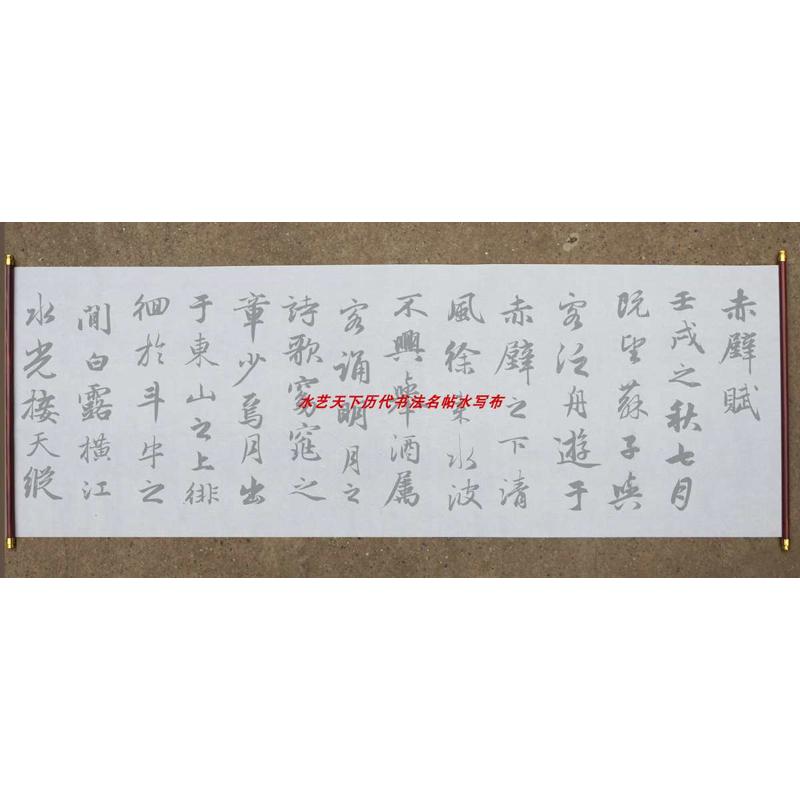 赤壁賦
壬戌之秋七月
既望蘇子與
客泛舟遊于
赤壁之下清
風徐来水波
不興舉酒属
客诵明月之
詩歌窈窕之
章少焉月出
于東山之上徘
徊於斗牛之
間白露橫江
水光接天縱
水艺天下历代书法名帖水写布